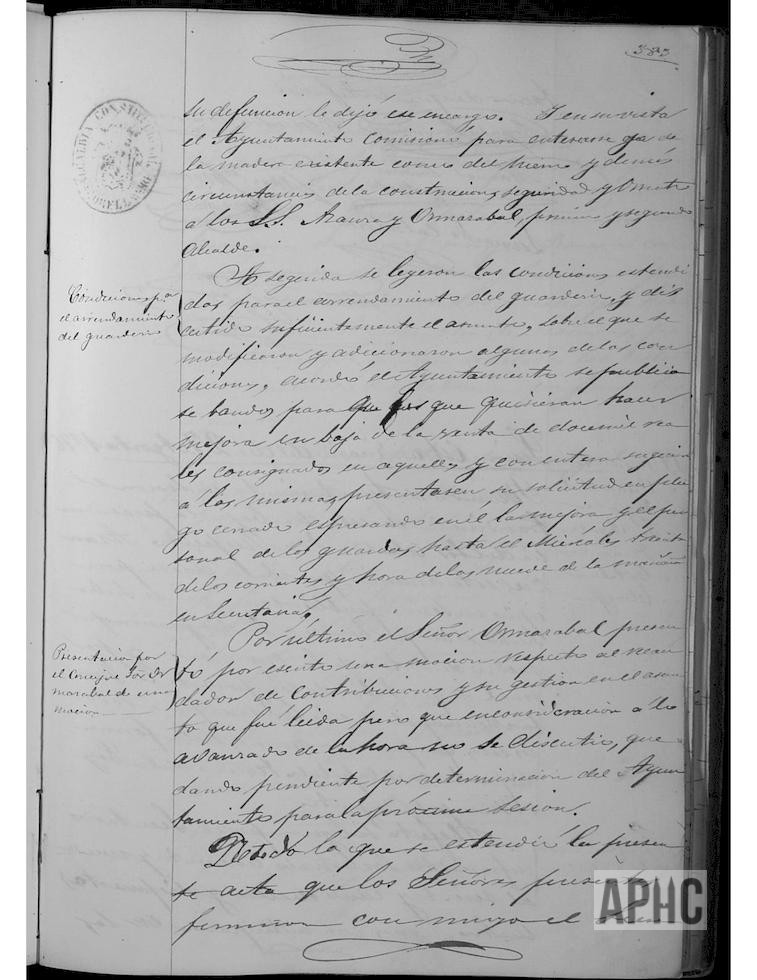 383
ALCALDIA CONSTITUCIONAL
su defuncion le dijó ese encargo. Y en su vista
el Ayuntamiento comisionó para enterarse ya de
la madera existente como del hierro y demás
circunstancias de la construccion, seguridad y
á los S.S. Maura y Ormarabal, primero y segundo
Alcalde.
Condiciones para
el arrendamiento
del guarderio
A seguida se leyeron las condiciones estendi
das para el arrendamiento del guarderio, y dis
cutido suficientemente el asunto, sobre el que se
modificaron y adicionaron algunas de las con
diciones, acordó el Ayuntamiento se publica
se bando, para que los que quisieran hacer
mejora en baja de la renta de doce mil rea
les consignados en aquellas y con entera sugecion
á las mismas, presentasen su solicitud en plie
go cerrado espresando en él la mejora y el per
sonal de los guardas, hasta el Miércoles treinta
de los corrientes y hora de las nueve de la mañana
en Secretaria.
Presentacion por
el Concejal Sor Or
marabal de una
mocion
Por último el Señor Ormarabal presen
tó por escrito una mocion respecto al recau
dador de Contribuciones y su gestion en el asun
to que fué leida pero que en consideracion á lo
avanzado de la hora no se discutió, que
dando pendiente por determinacion del Ayun
tamiento para la próxima Sesion.
De todo lo que se estendió la presen
te acta que los Señores presentes
firmaron con migo el
APHC